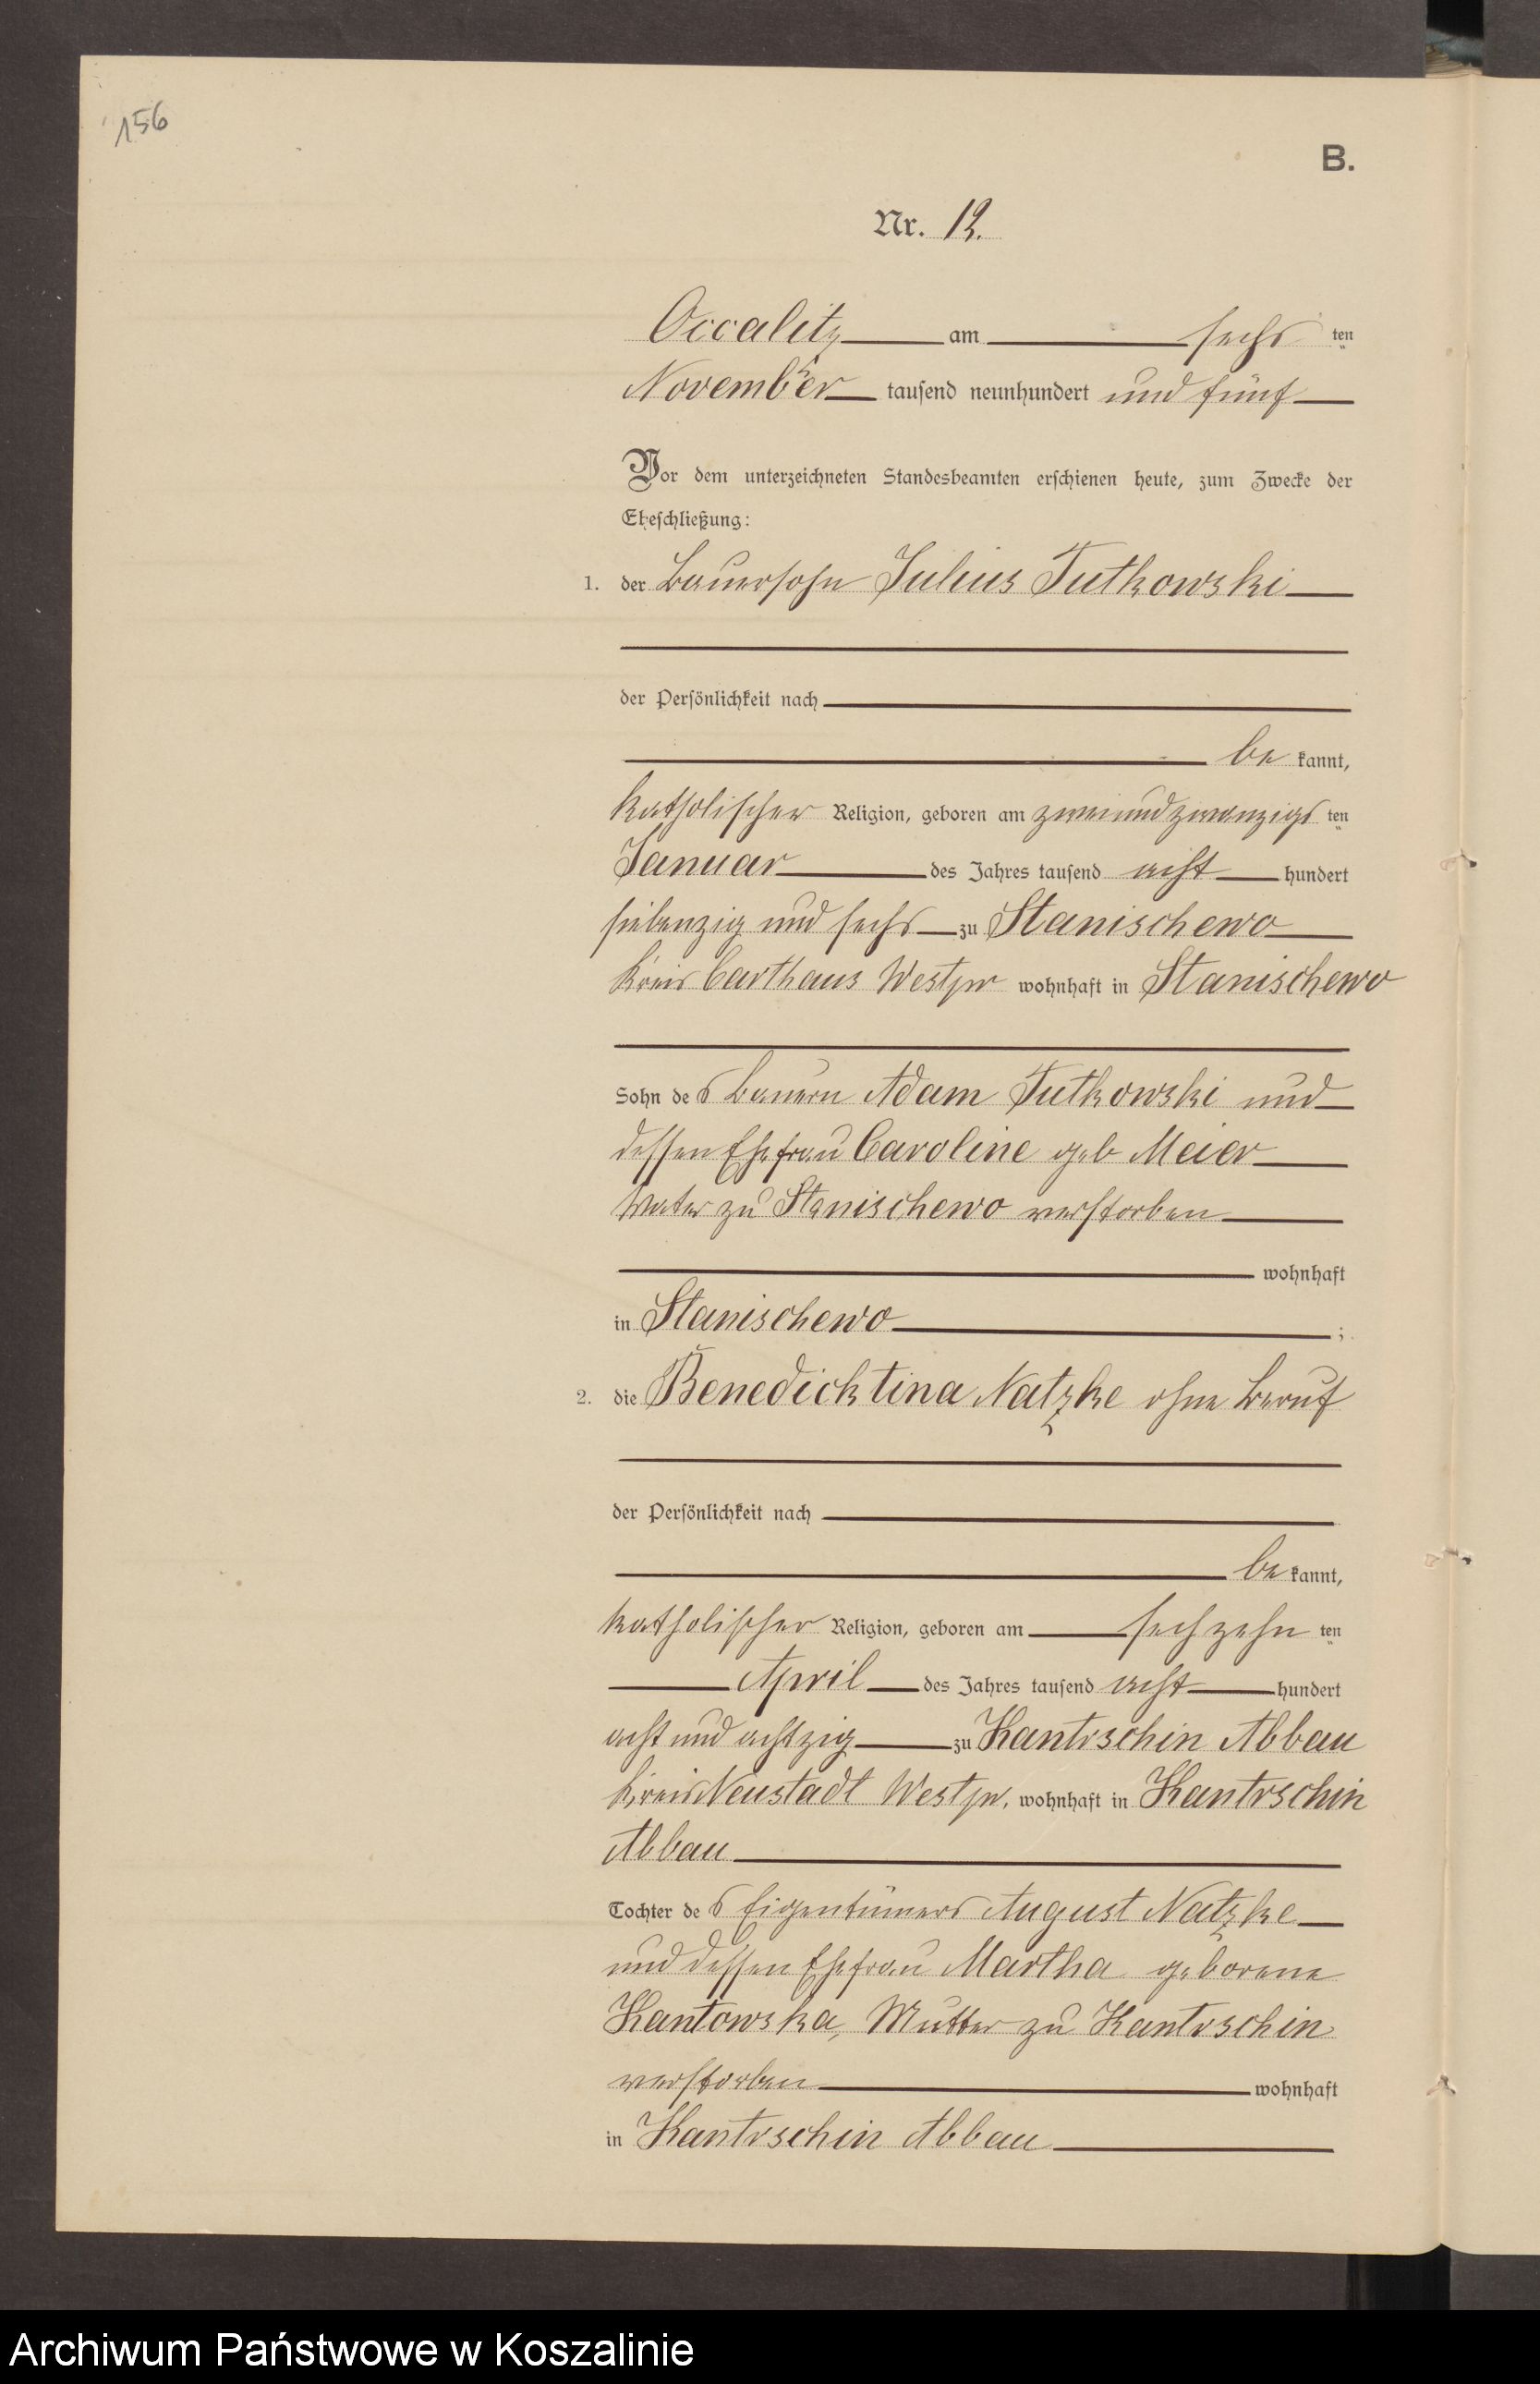 156
B.
Nr. 12.
Occalitz am sechs ten
November tausend neunhundert und fünf
Vor dem unterzeichneten Standesbeamten erschienen heute, zum Zwecke der
Eheschließung:
1. der Bauersohn Julius Tutkowski
der Persönlichkeit nach
be kannt,
katholischer Religion, geboren am zweiundzwanzigs ten
Januar des Jahres tausend acht hundert
siebenzig und sechs zu Stanischewo
Kreis Carthaus Westpr wohnhaft in Stanischewo
Sohn des Bauern Adam Tutkowski und
dessen Ehefrau Caroline geb Meier
Vater zu Stanischewo verstorben
wohnhaft
in Stanischewo ;
2. die Benedicktina Natzke ohne Beruf
der Persönlichkeit nach
be kannt,
katholischer Religion, geboren am sechzehn ten
April des Jahres tausend acht hundert
acht und achtzig zu Kantrschin Abbau
Kreis Neustadt Westpr. wohnhaft in Kantrschin
Abbau
Tochter des Eigentümers August Natzke
und dessen Ehefrau Martha geborene
Kantowska, Mutter zu Kantrschin
verstorben wohnhaft
in Kantrschin Abbau
Archiwum Państwowe w Koszalinie